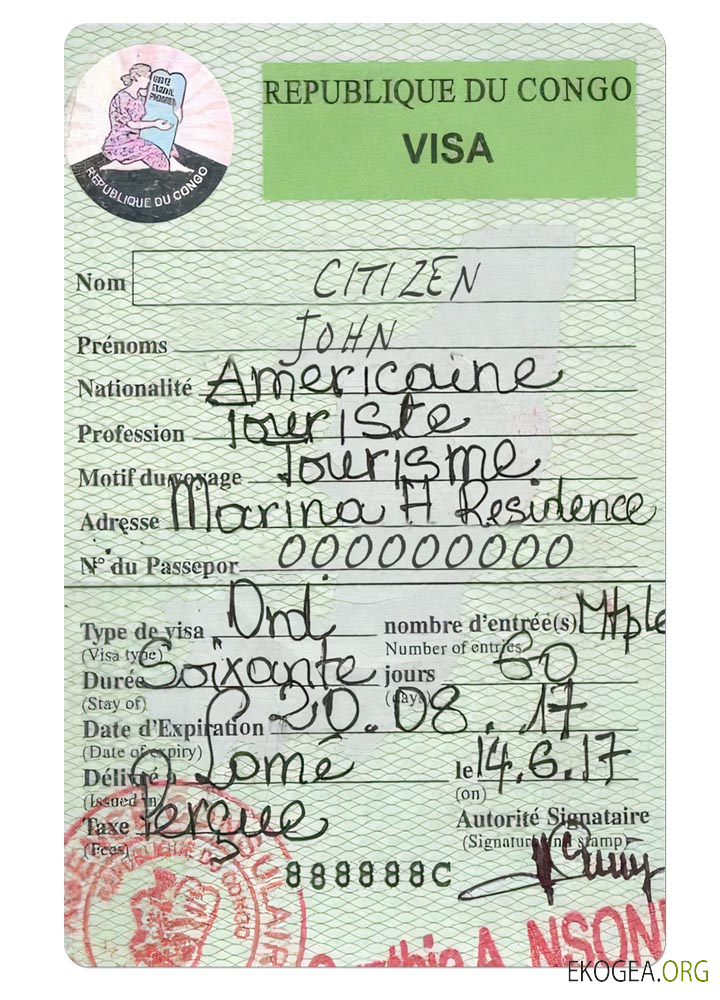 UNITÉ
TRAVAIL
PROGRÈS
REPUBLIQUE DU CONGO
REPUBLIQUE DU CONGO
VISA
Nom CITIZEN
Prénoms JOHN
Nationalité Américaine
Profession Touriste
Motif du voyage Tourisme
Adresse Marina H Residence
N° du Passepor 000000000
Type de visa Ord. nombre d'entrée(s) Mtple
(Visa type) Number of entries
Durée Soixante jours 60
(Stay of) (days)
Date d'Expiration 20.08.17
(Date of expiry)
Délivré à Lomé le 14.6.17
(Issued in) (on)
Taxe Perçue Autorité Signataire
(Fees) (Signature and stamp)
888888C
REPUBLIQUE DU CONGO
A. NSON
EKOGEA.ORG